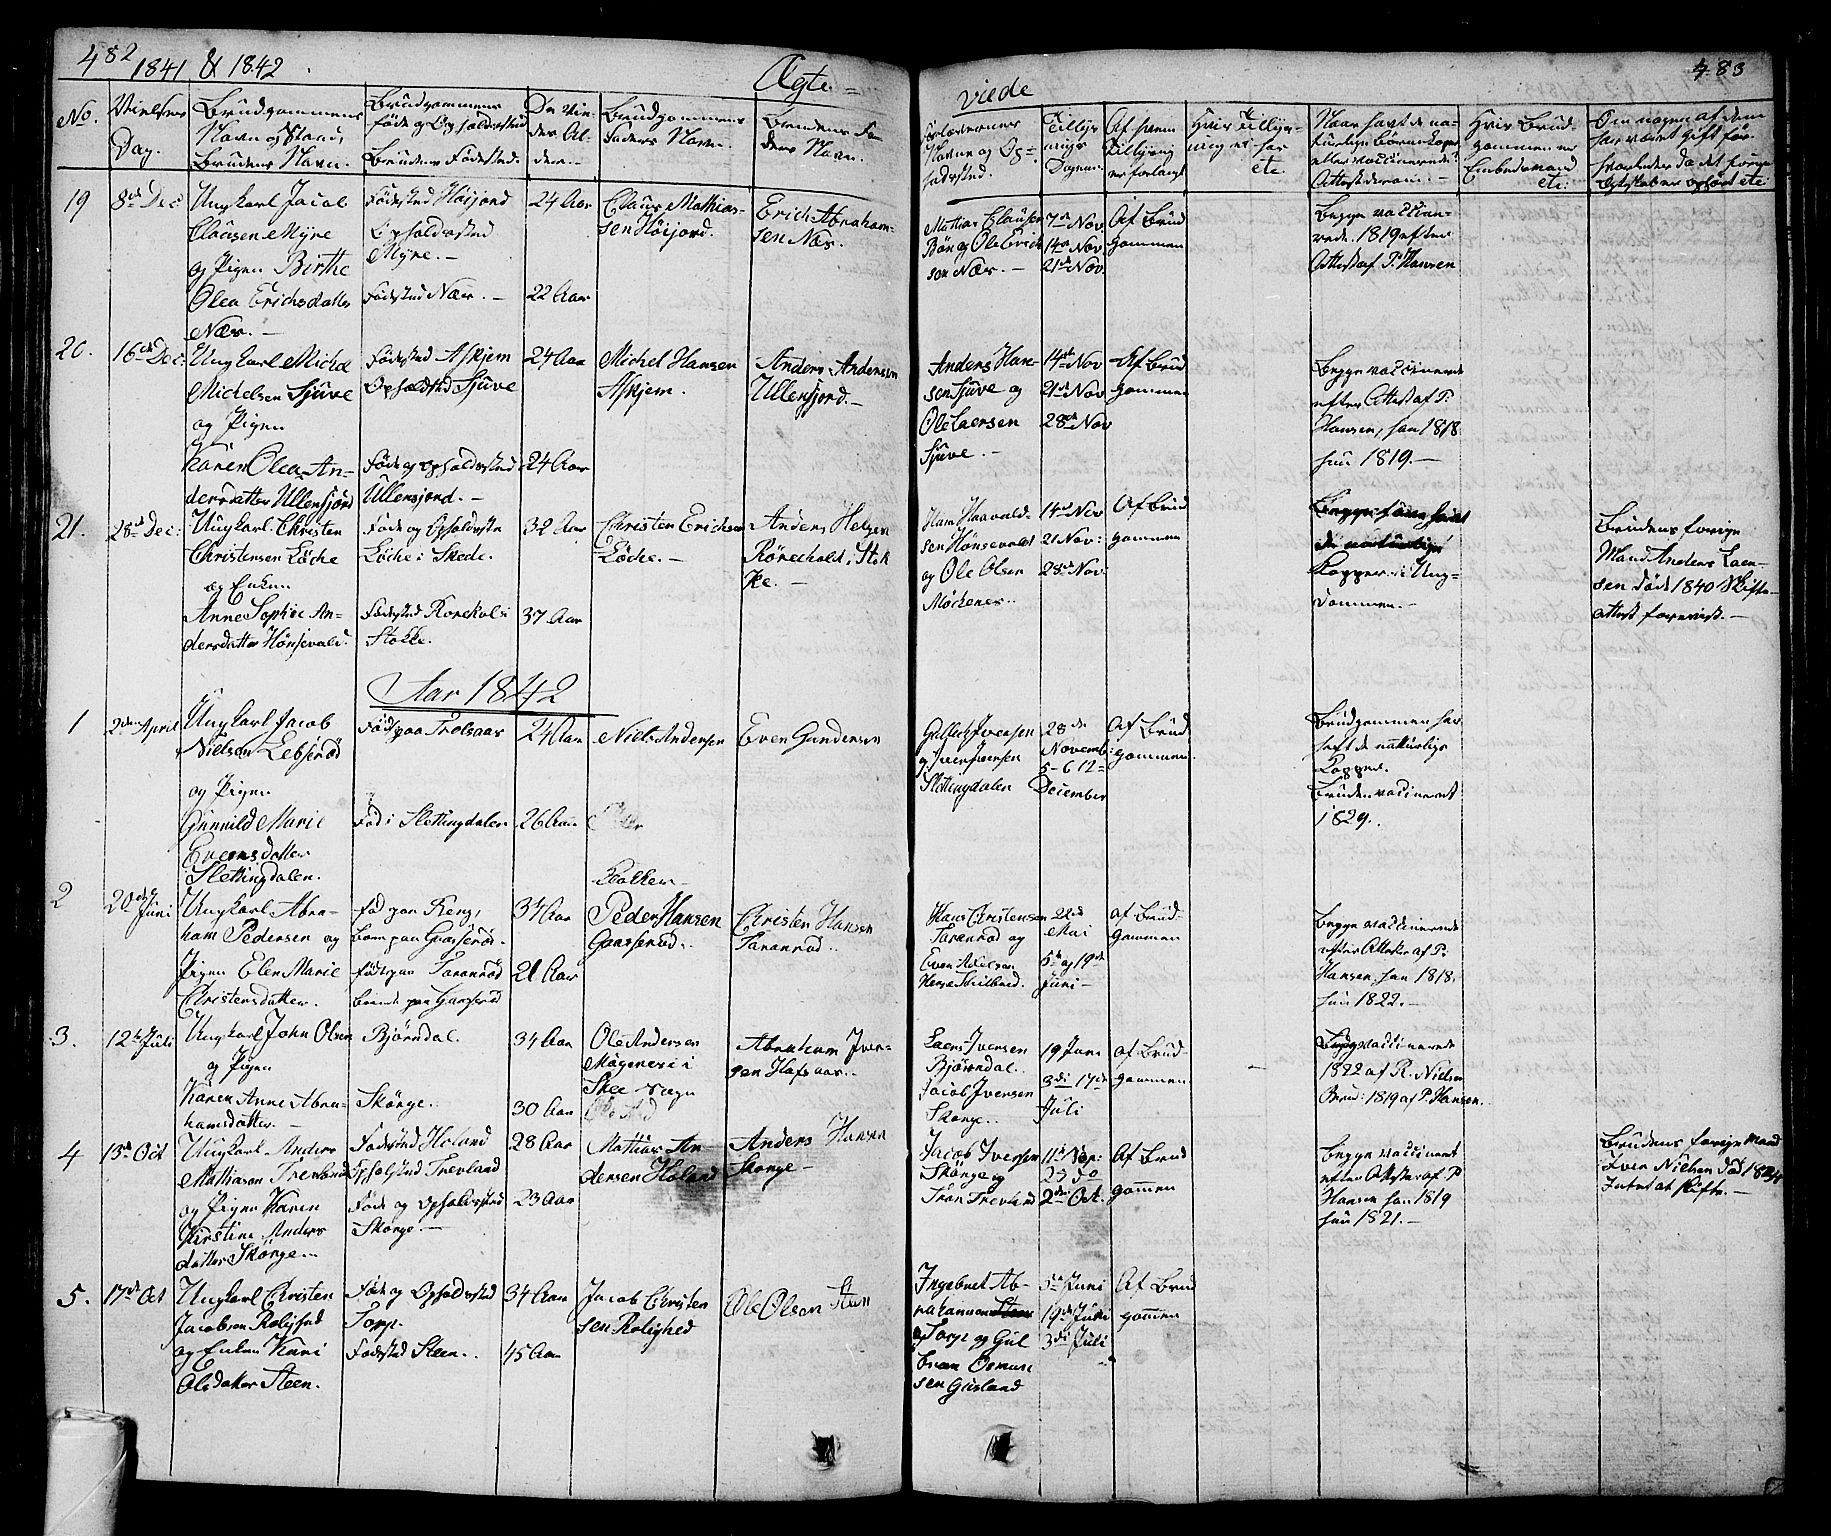 482
1841 & 1842
Ægte-
viede
483
No.
Vielses
Dag.
Brudgommens
Navn og Stand,
Brudens Navn.
Brudgommens
føde og Opholdssted
Brudens Fødested.
De Vie-
des Al-
der.
Brudgommens
Faders Navn.
Brudens Fa-
ders Navn.
Forloverernes
Navne og Op-
holdssted.
Tillys-
nings
Dagene
Af hvem
Tillysning
er forlangt
Naar havt de na-
turlige Børnekopper
eller vaccinerede?
Attest derom.
Hvis Brud-
gommen er
Embedsmand
etc:
Om nogen af dem
har været gift før
19
8de Dec
Ungkarl Jacob
Clausen Myre
og Pigen Birthe
Olea Erichsdatter
Nær. -
Fødested Høijord
Opholdssted
Myre. -
Fødested Nær. -
24 Aar
22 Aar
Claus Mathias-
sen Høijord.
Erich Abraham-
sen Nær.
Mathias Clausen
Bøe og Ole Erich
sen Nær. -
7de Nov
14de Nov
21de Nov
Af Brud
gommen
Begge vaccine-
rede 1819 efter
Attest af P. Hansen
20.
16de Dec:
Ungkarl Michel
Michelsen Sjüve
og Pigen
Karen Olea An-
dersdatter Ullensjord
Fødested Askjem
Opholdsted Sjüve
Føde og opholdssted
Ullensjord. -
24 Aar
24 Aar
Michel Hansen
Askjem.
Anders Andersen
Ullensjord. -
Anders Han-
sen Sjuve og
Ole Larsen
Sjuve. -
14de Nov
21de Nov
28de Nov
Af Brud
gommen
Begge vaccinerede
efter Attest af P.
Hansen, han 1818
hun 1819. -
21.
28de Dec:
Ungkarl Christen
Christensen Løche
og Enken
Anne Sophie An-
dersdatter Hønsevald.
Føde og Opholdsste
Løche i Skede.
Fødested Rørekol i
Stokke.
32 Aar
37 Aar
Christen Erichsen
Løche. -
Anders Helgen
Rørechold i Stok
ke. -
Hans Harvald-
sen Hønsevald
og Ole Olsen
Møckenes.
14de Nov
21 Nov:
28de Nov:
Af Brud
gommen
Begge have havt
de naturlige
Kopper i Ung-
dommen. -
Brudens forrige
Mand Anders Laer-
sen død 1840 Skifte-
attest forevist. -
Aar 1842
1
2den April
Ungkarl Jacob
Nielsen Lebserød
og Pigen
Gunnild Marie
Evensdatter
Slettingdalen.
Født paa Trolsaas
Fød i Slettingdalen
24 Aar
26 Aar
Niels Andersen
Even Gundersen
Gulbrand Iversen
og Iver Iversen
Slettingdalen
28de
Novemb:
5 - 6 12 -
December
Af Brud
gommen.
Brudgommen har
haft de naturlige
Kopper.
Bruden vaccineret
1829.
2
20de Juni
Ungkarl Abra-
ham Pedersen og
Pigen Elen Marie
Christensdatter.
fød paa Berg,
boen paa Gaasserød.
født paa Faranrød
boende paa Gaaserød
34 Aar
21 Aar
Bakken
Peder Hansen
Gaasserød.
Christen Hansen
Faranrød.
Hans Christensen
Faranrød og
Even Nielsen
22de
Mai
5te og 19de
Juni -
af Brud-
gommen.
Begge vaccinerede
efter Attester af P.
Hansen, han 1818.
hun 1822. -
3.
12te Juli
Ungkarl John Olsen
og Pigen
Karen Anne Abra-
hamsdatter. -
Bjørndal.
Skorge.
34 Aar
30 Aar
Ole Andersen
Møgenesi i
Skee Sogn
Abraham Iver-
sen Hafsaas. -
Laers Iversen
Bjørndal.
Jacob Iversen
Skorge.
19 Juni
3di 17de
Juli
af Brud-
gommen
Begge vaccinerede
1822 af R. Nielsen
Brud: 1819 af P. Hansen.
4
15de Oct
Ungkarl Anders
Mathiasen Trevland
og Pigen Karen
Kirstine Anders
datter Skorge. -
Fødested Holand
Opholdssted Trevland
Føde og Opholdssted
Skorge. -
28 Aar
23 Aar
Mathias An
dersen Holand
Anders Hansen
Skorge -
Jacob Iversen
Skørge og
Tron Trevland
11te Sep:
23 do
2den Oct.
Af Brud
gommen
Begge vaccineret
efter Attester af P
Hansen han 1819
hun 1821. -
Brudens forrige Mand
Iver Nielsen død 1824
Intet at skifte. -
5.
17de Oct
Ungkarl Christen
Jacobsen Rolighed
og Enken Kari
Olsdatter Steen.
Føde og Opholdssted
Torp.
Fødested Steen.
34 Aar
45 Aar
Jacob Christen
sen Rolighed
Ole Olsen Steen
Ingebret Ab-
rahamsen Steen
Torp og Gul
bran Osmun
sen Gusland
5te Juni
19de Juni
3di Juli
Af Brud
gommen